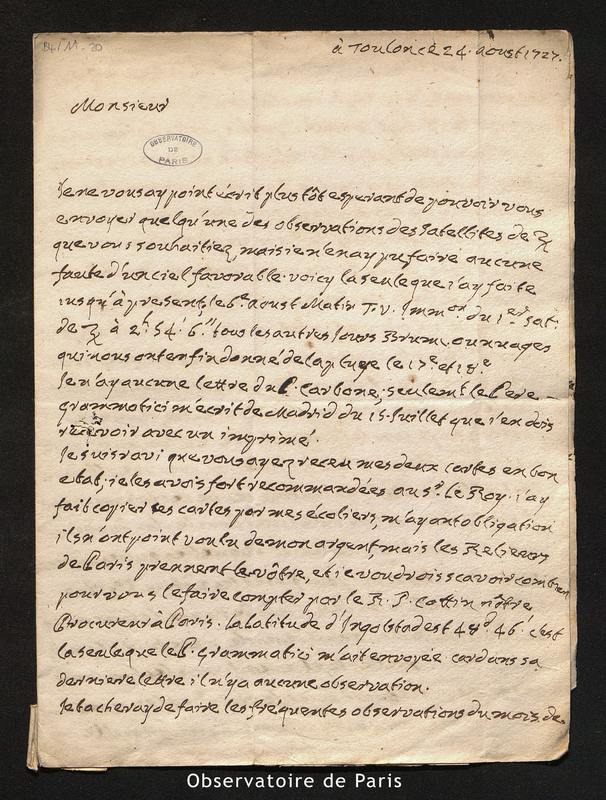 B4/11-20
à Toulon ce 24. Aoust 1727.
Monsieur
OBSERVATOIRE
DE
PARIS
Je ne vous ay point écrit plus tôt esperant de pouvoir vous
envoyer quelqu'une des observations des satellites de ♃
que vous souhaitiez, mais ie n'en ay pu faire aucune
faute d'un ciel favorable. voicy la seule que i'ay faite
iusqu'à present, le 6e aoust Matin T.V. Imm.on du 1er Sat.
de ♃ à 2h 54' 6" tous les autres Jours Brume ou nuages
qui nous ont enfin donné de la pluye le 17e et 18e
Je n'ay aucune lettre du P. Carbone, seulemt le Pere
Grammatici m'écrit de Madrid du 15 Juillet que i'en dois
recevoir avec un imprimé.
Je suis ravi que vous ayez receu mes deux cartes en bon
etat, ie les avois fort recommandées au Sr. le Roy. i'ay
fait copier les cartes par mes écoliers, m'ayant obligation
ils n'ont point voulu de mon argent, mais les Relieurs
de Paris prennent le vôtre, et ie voudrois scavoir combien
pour vous le faire compter par le R. P. Cottin nôtre
Procureur à Paris. la latitude d'Ingolstad est 48d. 46' c'est
la seule que le P. Grammatici m'ait envoyée car dans sa
derniere lettre il n'y a aucune observation.
Je tacheray de faire les fréquentes observations du mois de
Observatoire de Paris